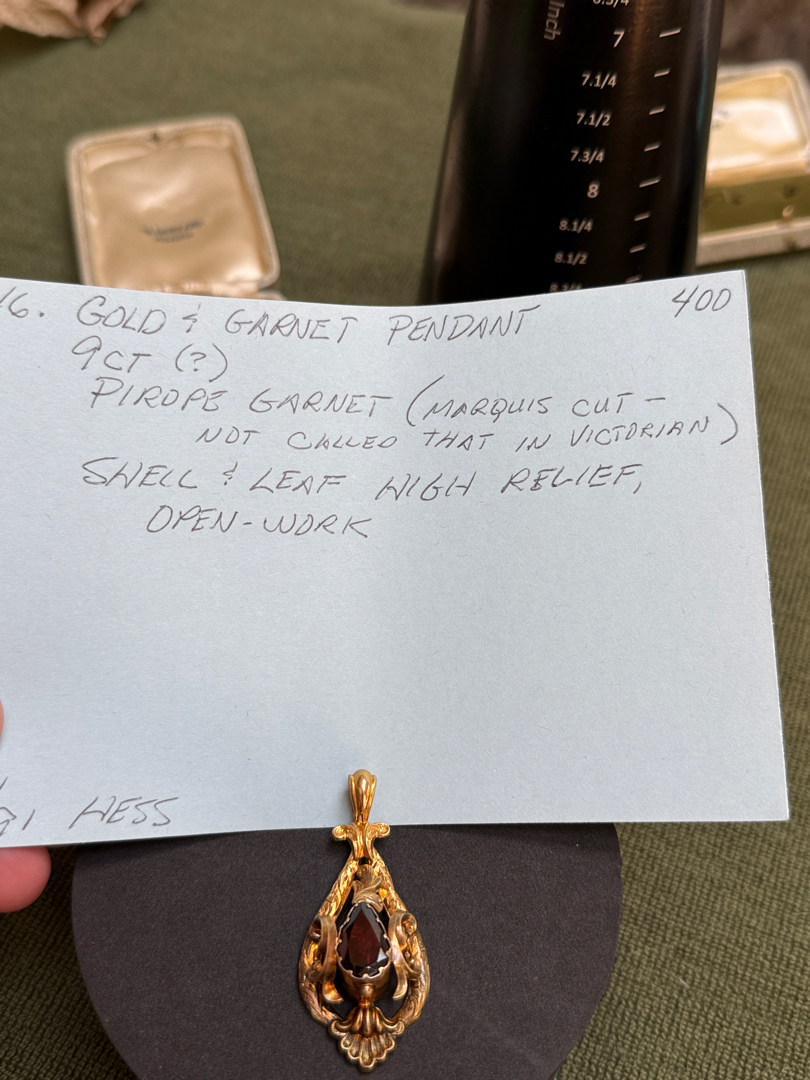 Inch
6.3/4
7
7.1/4
7.1/2
7.3/4
8
8.1/4
8.1/2
16. GOLD & GARNET PENDANT 400
9CT (?)
PIROPE GARNET (MARQUIS CUT -
NOT CALLED THAT IN VICTORIAN)
SHELL & LEAF HIGH RELIEF,
OPEN-WORK
HESS